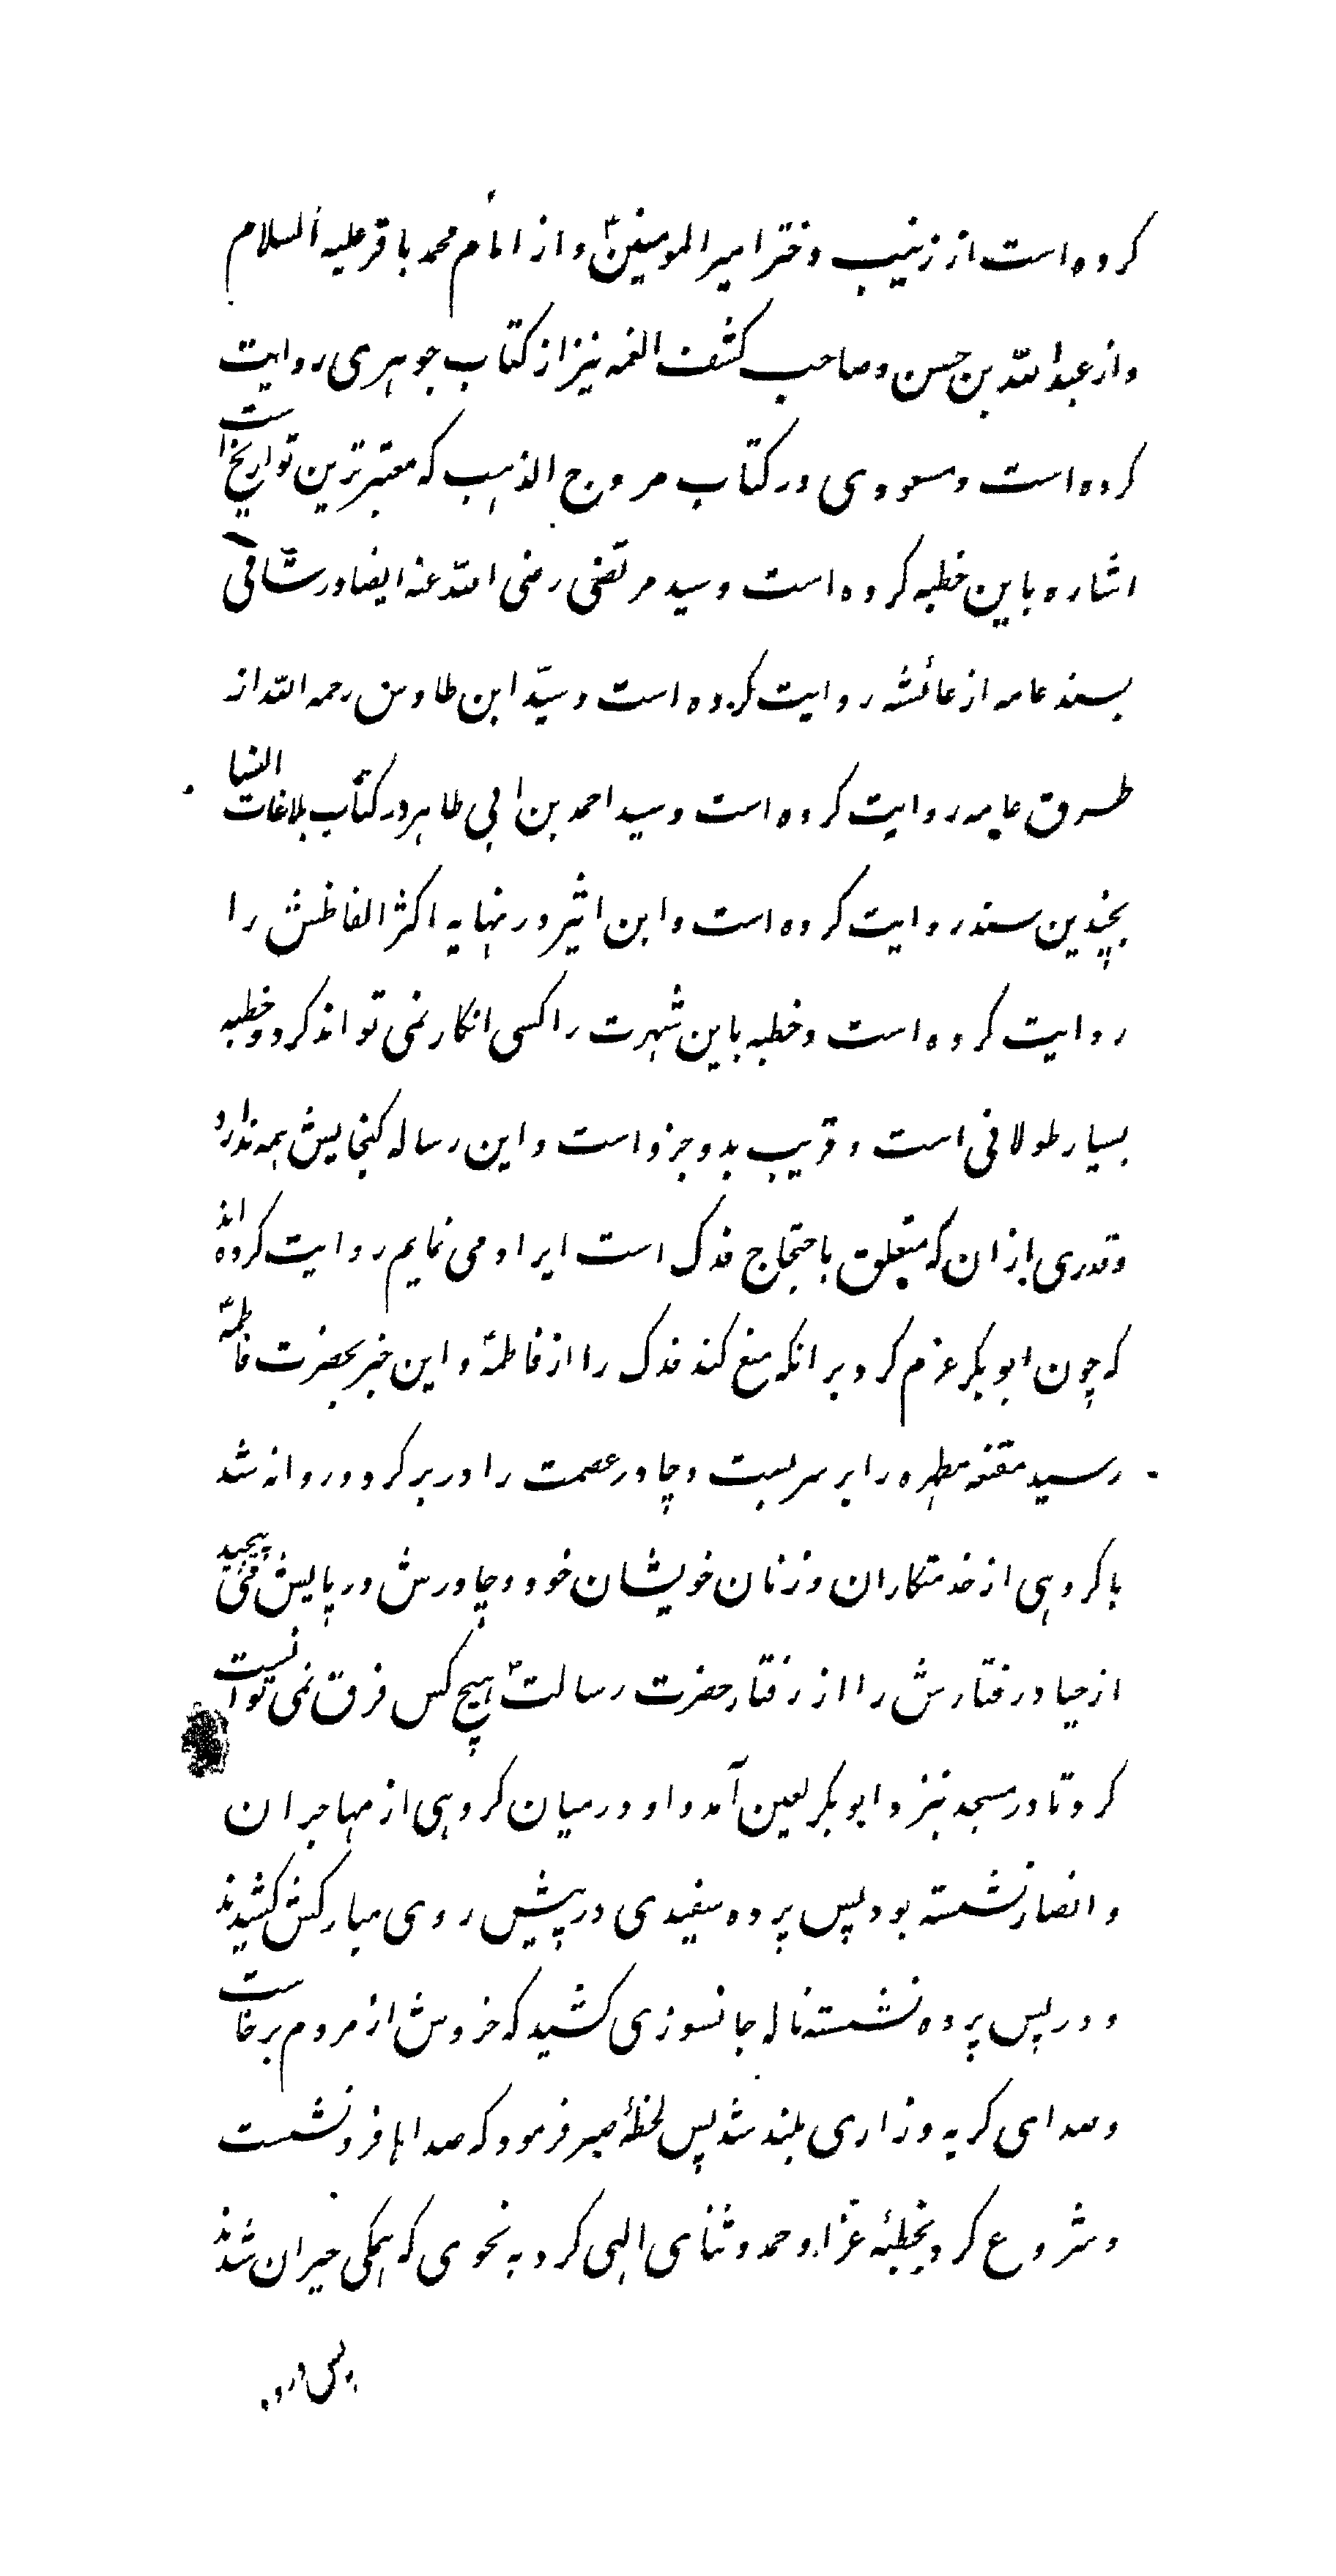 کرده است از زینب دختر امیر المومنینؑ و از امام محمد باقر علیه السلام
و از عبد الله بن حسن و صاحب کشف الغمه نیز از کتاب جوهری روایت
کرده است و مسعودی در کتاب مروج الذهب که معتبر ترین تواریخ است
اشاره باین خطبه کرده است و سید مرتضی رضی الله عنه ایضا در شافی
بسند عامه از عائشه روایت کرده است و سیّد ابن طاوس رحمه الله از
طرق عامه روایت کرده است و سید احمد بن ابی طاهر در کتاب بلاغات النسا
بچندین سند روایت کرده است و ابن اثیر در نهایه اکثر الفاظش را
روایت کرده است و خطبه باین شهرت را کسی انکار نمی تواند کرد و خطبه
بسیار طولانی است و قریب بدو جزو است و این رساله کنجایش همه ندارد
و قدری از ان که متعلق باحتجاج فدک است ایراد می نمایم روایت کرده اند
که چون ابو بکر عزم کرد بر انکه منع کند فدک را از فاطمهؑ و این خبر بحضرت فاطمهؑ
رسید مقنعه مطهره را بر سر بست و چادر عصمت را در بر کرد و روانه شد
با کروهی از خدمتکاران و زنان خویشان خود و چادرش در پایش می پیچید
از حیا و رفتارش را از رفتار حضرت رسالتؐ هیچ کس فرق نمی توانست
کرد تا در مسجد بنزد ابو بکر لعین آمد و او در میان کروهی از مهاجران
و انصار نشسته بود پس پرده سفیدی در پیش روی مبارکش کشیدند
و در پس پرده نشسته ناله جانسوزی کشید که خروش از مردم برخاست
و صدای کریه و زاری بلند شد پس لحظهٔ صبر فرمود که صداها فرو نشست
و شروع کرد بخطبهٔ غرّا و حمد و ثنای الهی کرد به نحوی که همکی حیران شدند
پس درود